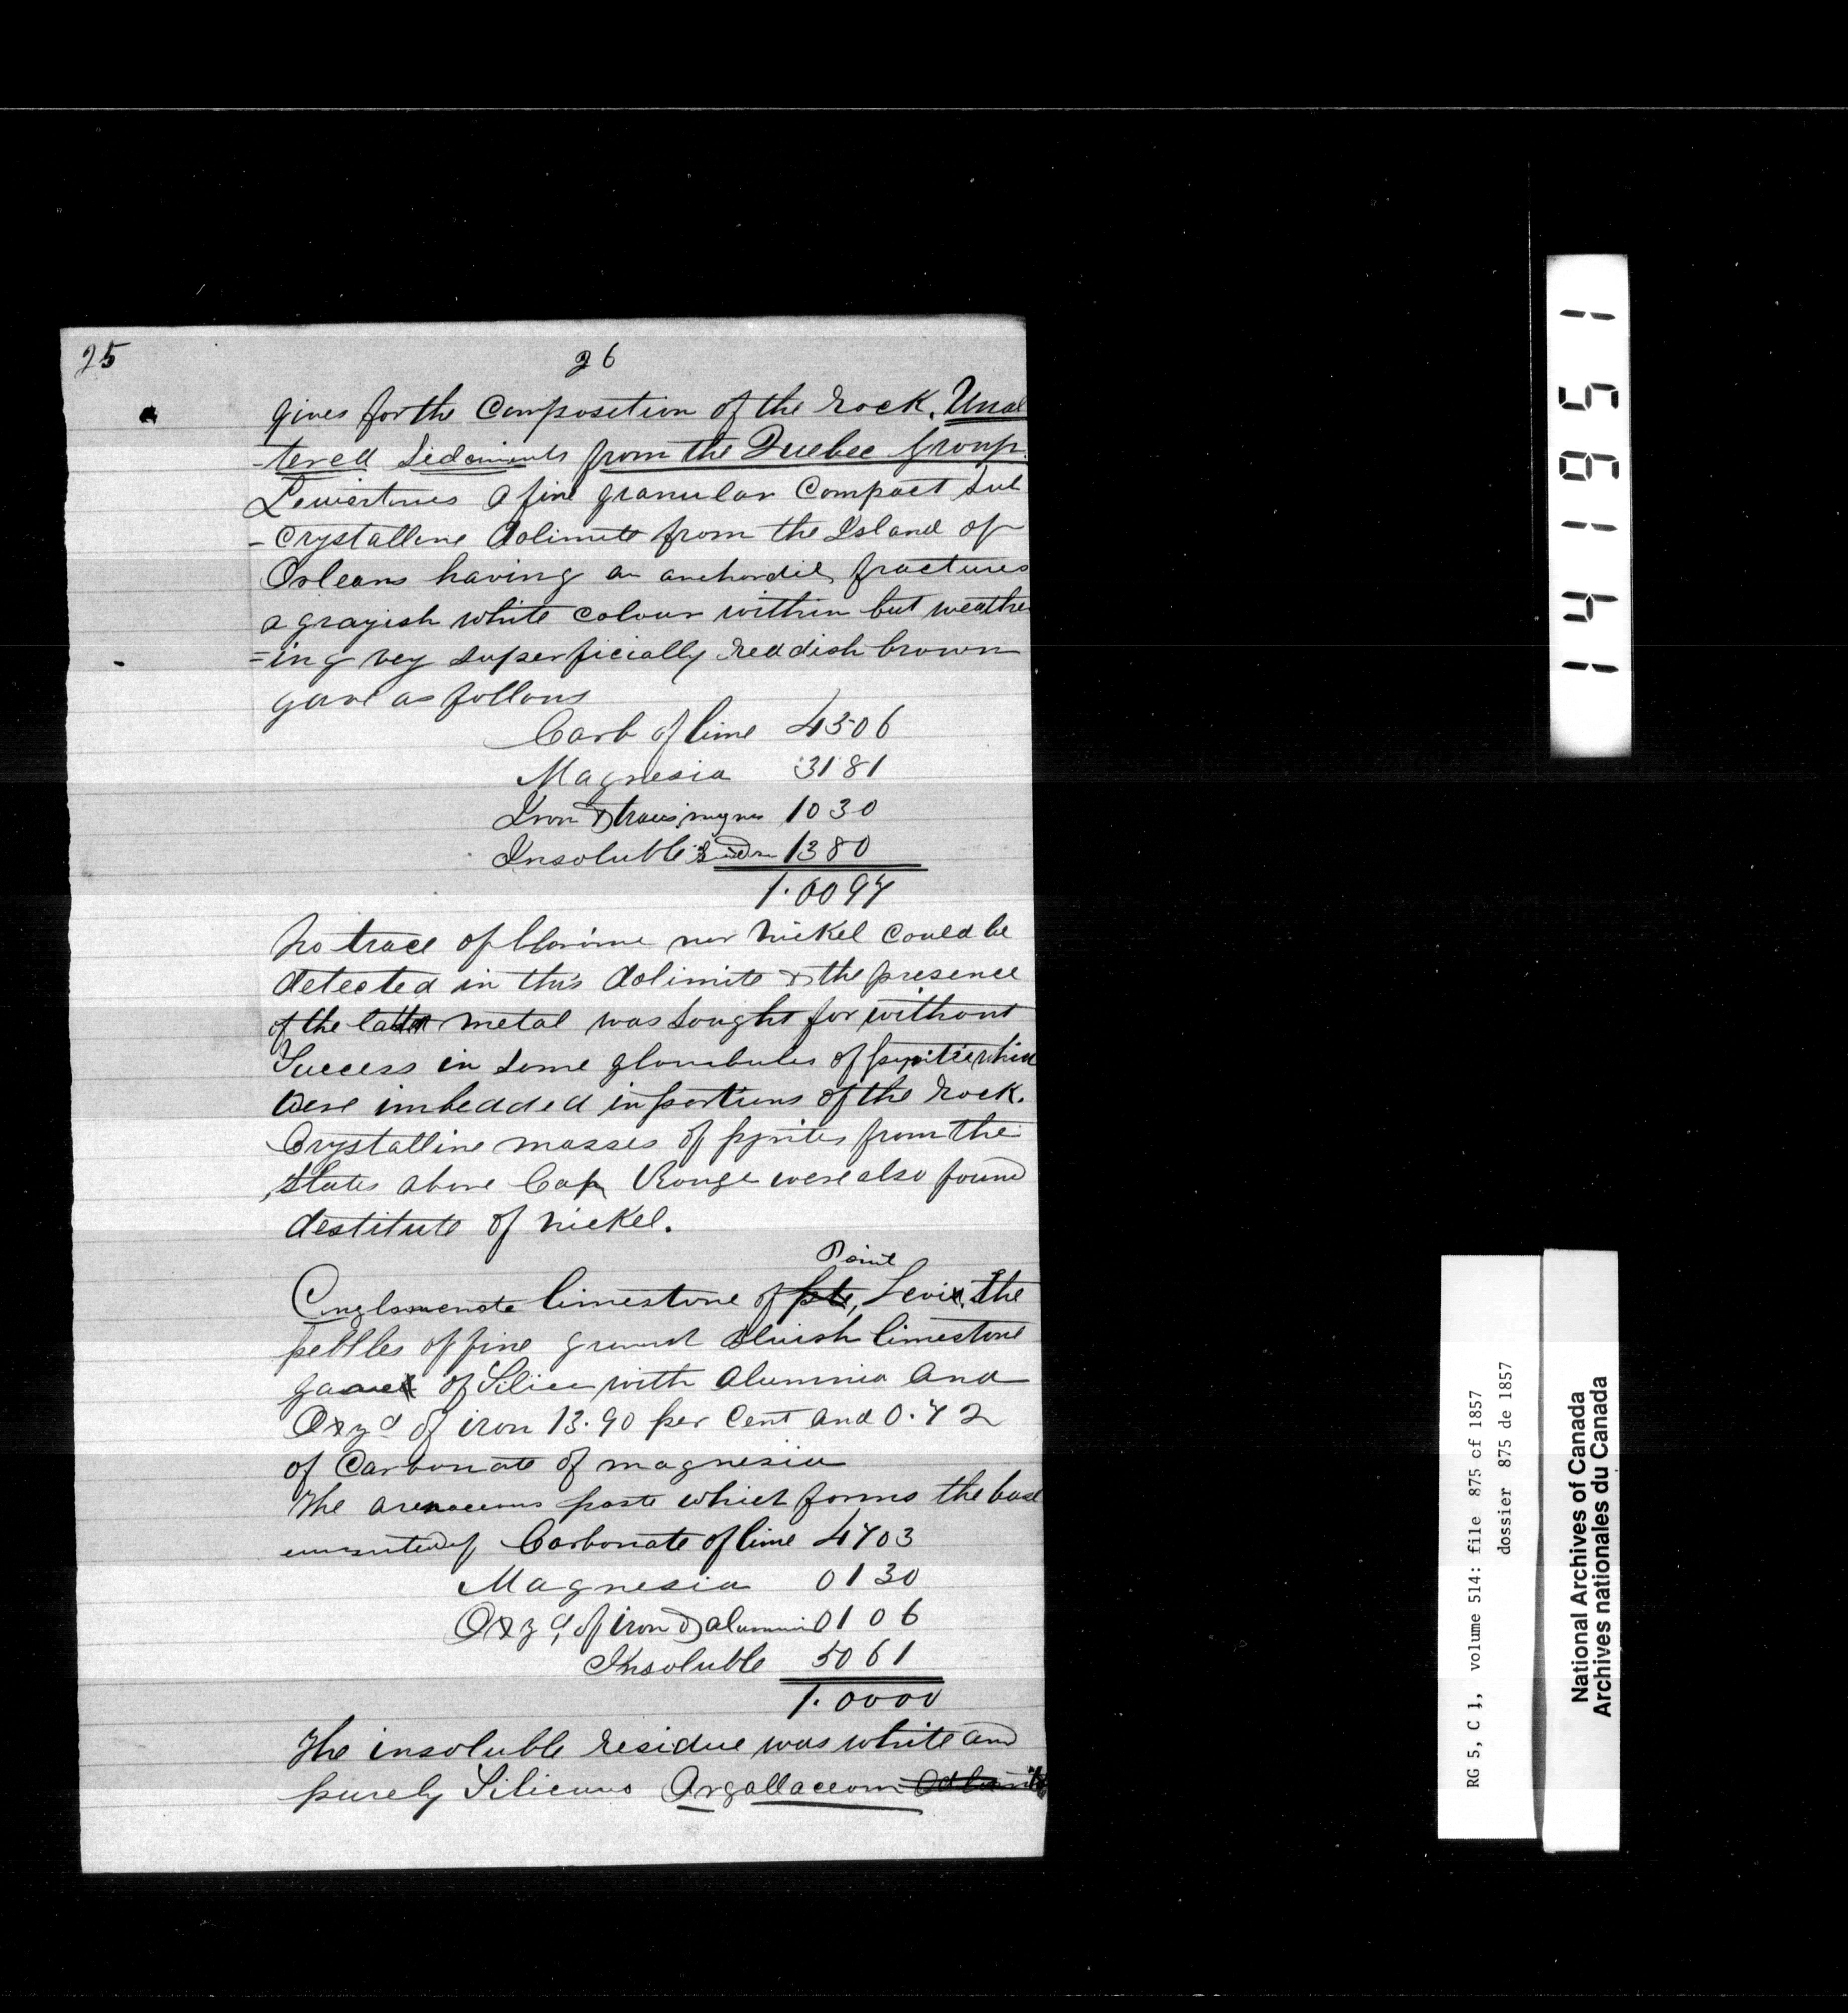 25
26
gives for the Composition of the rock. Unal
-tered Sediments from the Quebec Group.
a fine granular Compact Sub
-Crystalline dolimite from the Island of
Orleans having an fractures
a grayish white colour within but weather
=ing vey superficially reddish brown
gave as follows
Carb of lime 4506
Magnesia 3181
Iron & traces 1030
Insoluble 1380
1.0097
No trace of nor nickel could be
detected in this dolimite & the presence
of the latter metal was sought for without
Success in some of
were imbedded in portions of the rock.
Crystalline masses of pyrites from the
slates above Cap Rouge were also found
destitute of nickel.
Point
Conglomerate limestone of pte, Levi. The
pebbles of fine bluish limestone
gave of Silica with Alumnia and
Oxyd of iron 13.90 per Cent and 0.72
of Carbonate of magnesia
The arenaceous paste which forms the base
Carbonate of lime 4703
Magnesia 0130
Oxyd, of iron & alumnia 0106
Insoluble 5061
1.0000
The insoluble residue was white and
purely Silicious Argallaceous
141951
RG 5, C 1, volume 514: file 875 of 1857
dossier 875 de 1857
National Archives of Canada
Archives nationales du Canada